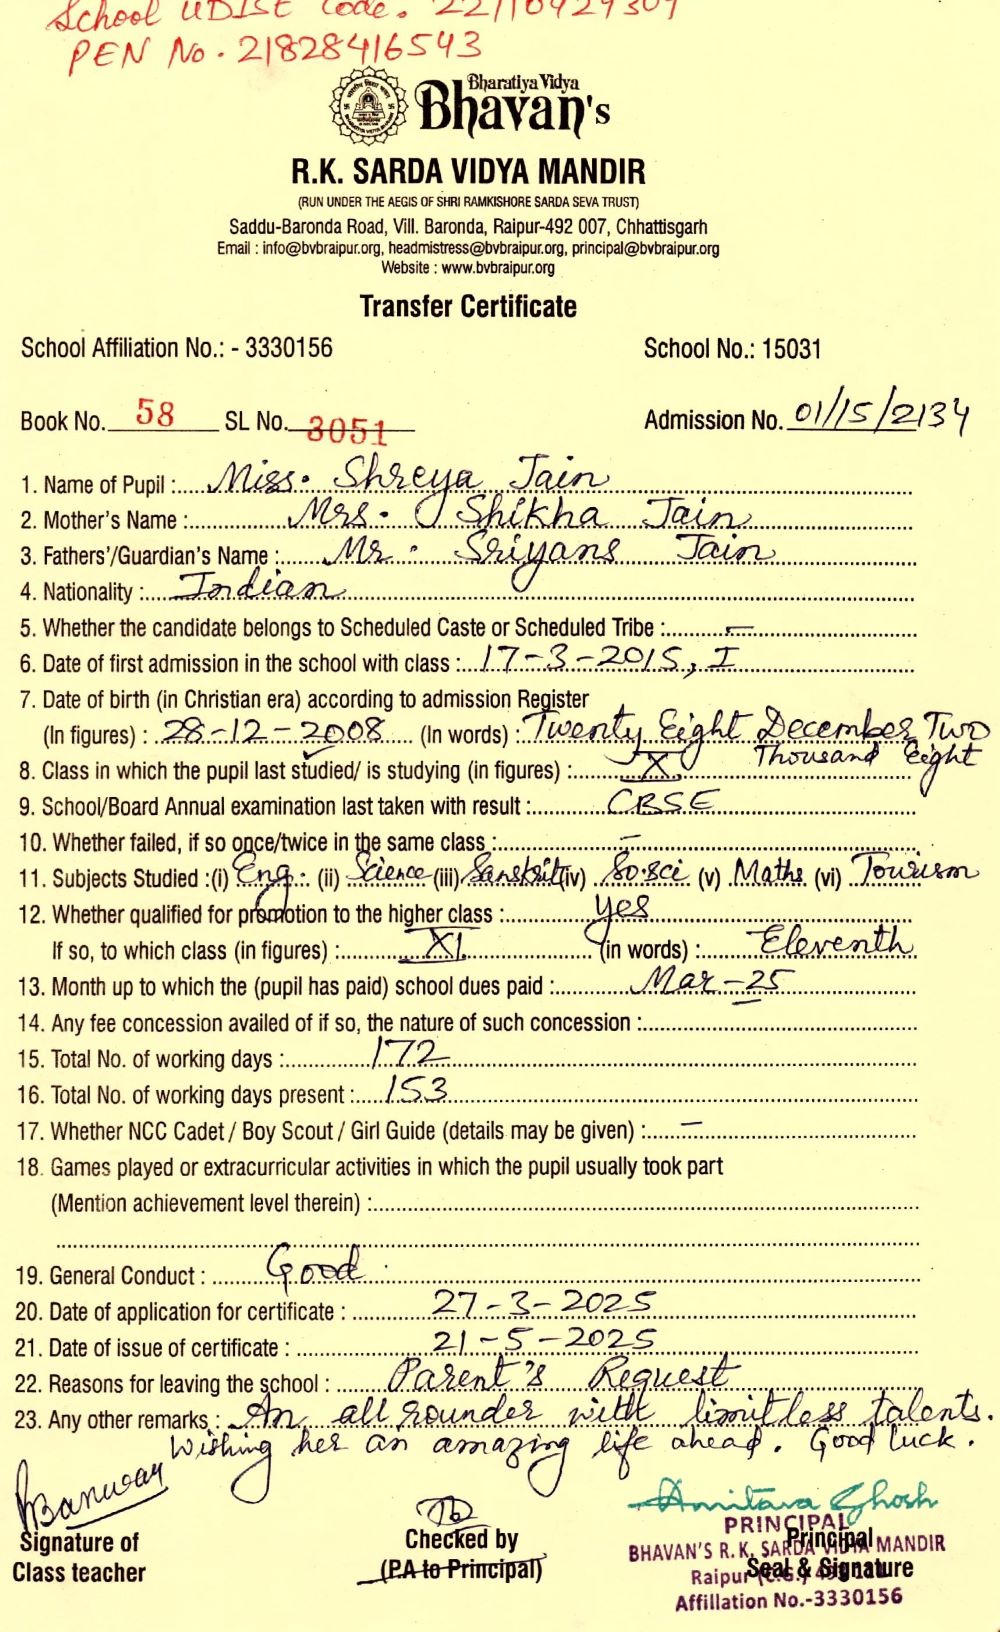 School UDISE Code. 22110929309
PEN No. 21828416543
Bharatiya Vidya
Bhavan's
R.K. SARDA VIDYA MANDIR
(RUN UNDER THE AEGIS OF SHRI RAMKISHORE SARDA SEVA TRUST)
Saddu-Baronda Road, Vill. Baronda, Raipur-492 007, Chhattisgarh
Email : info@bvbraipur.org, headmistress@bvbraipur.org, principal@bvbraipur.org
Website : www.bvbraipur.org
Transfer Certificate
School Affiliation No.: - 3330156 School No.: 15031
Book No. 58 SL No. 3051 Admission No. 01/15/2134
1. Name of Pupil : Miss. Shreya Jain
2. Mother's Name : Mrs. Shikha Jain
3. Fathers'/Guardian's Name : Mr. Sriyans Jain
4. Nationality : Indian
5. Whether the candidate belongs to Scheduled Caste or Scheduled Tribe : —
6. Date of first admission in the school with class : 17-3-2015, I
7. Date of birth (in Christian era) according to admission Register
(In figures) : 28-12-2008 (In words) : Twenty Eight December Two
Thousand Eight
8. Class in which the pupil last studied/ is studying (in figures) : X
9. School/Board Annual examination last taken with result : CBSE
10. Whether failed, if so once/twice in the same class : —
11. Subjects Studied :(i) Eng. (ii) Science (iii) Sanskrit (iv) So.sci (v) Maths (vi) Tourism
12. Whether qualified for promotion to the higher class : yes
If so, to which class (in figures) : XI (in words) : Eleventh
13. Month up to which the (pupil has paid) school dues paid : Mar-25
14. Any fee concession availed of if so, the nature of such concession :
15. Total No. of working days : 172
16. Total No. of working days present : 153
17. Whether NCC Cadet / Boy Scout / Girl Guide (details may be given) : —
18. Games played or extracurricular activities in which the pupil usually took part
(Mention achievement level therein) :
19. General Conduct : Good
20. Date of application for certificate : 27-3-2025
21. Date of issue of certificate : 21-5-2025
22. Reasons for leaving the school : Parent's Request
23. Any other remarks : An all rounder with limitless talents.
Wishing her an amazing life ahead. Good luck.
Amitava Ghosh
PRINCIPAL
Signature of Checked by Principal
BHAVAN'S R.K. SARDA VIDYA MANDIR
Class teacher (P.A to Principal) Seal & Signature
Raipur (C.G.)
Affillation No.-3330156